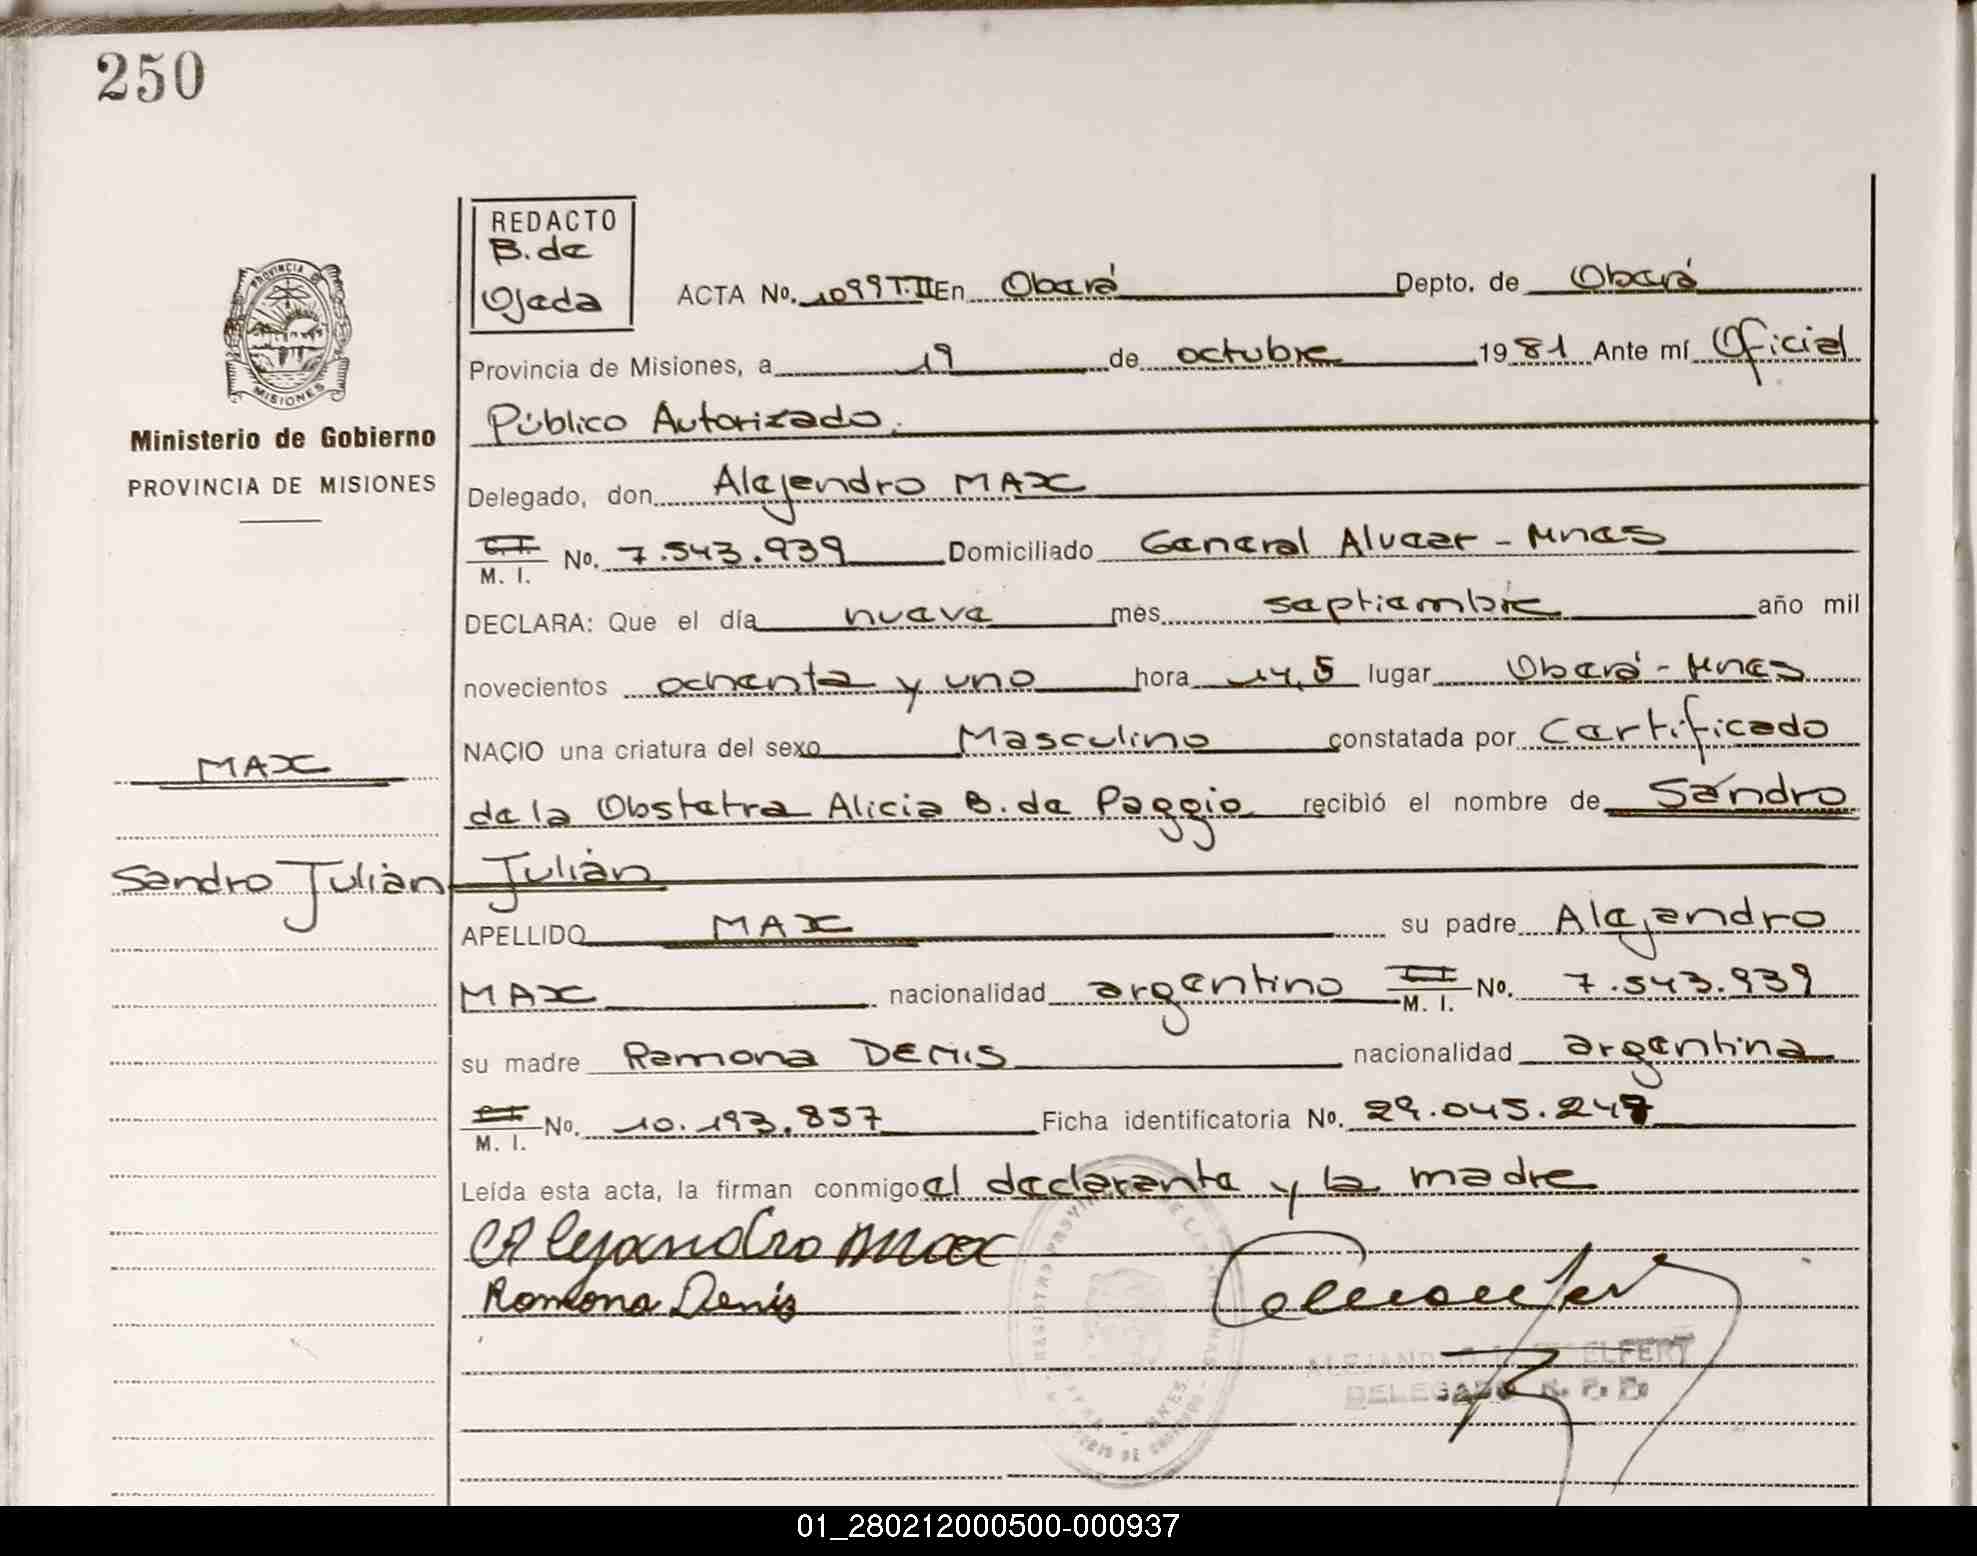 250
REDACTO
B. de
Ojeda
ACTA No. 1099 T.II En Oberá Depto. de Oberá
Provincia de Misiones, a 19 de octubre 1981 Ante mí Oficial
Público Autorizado.
Ministerio de Gobierno
PROVINCIA DE MISIONES
Delegado, don Alejandro MAX
C. I. M. I. No. 7.543.939 Domiciliado General Alvear - Mnes
DECLARA: Que el día nueve mes septiembre año mil
novecientos ochenta y uno hora 14,5 lugar Oberá - Mnes
NACIO una criatura del sexo Masculino constatada por Certificado
MAX
de la Obstetra Alicia B. de Poggio recibió el nombre de Sandro
Sandro Julián
Julián
APELLIDO MAX su padre Alejandro
MAX nacionalidad argentino C. I. M. I. No. 7.543.939
su madre Ramona DENIS nacionalidad argentina
C. I. M. I. No. 10.193.857 Ficha identificatoria No. 29.045.247
Leída esta acta, la firman conmigo el declarante y la madre
Alejandro Max
Ramona Denis
DELEGADO R. P. P.
01_280212000500-000937